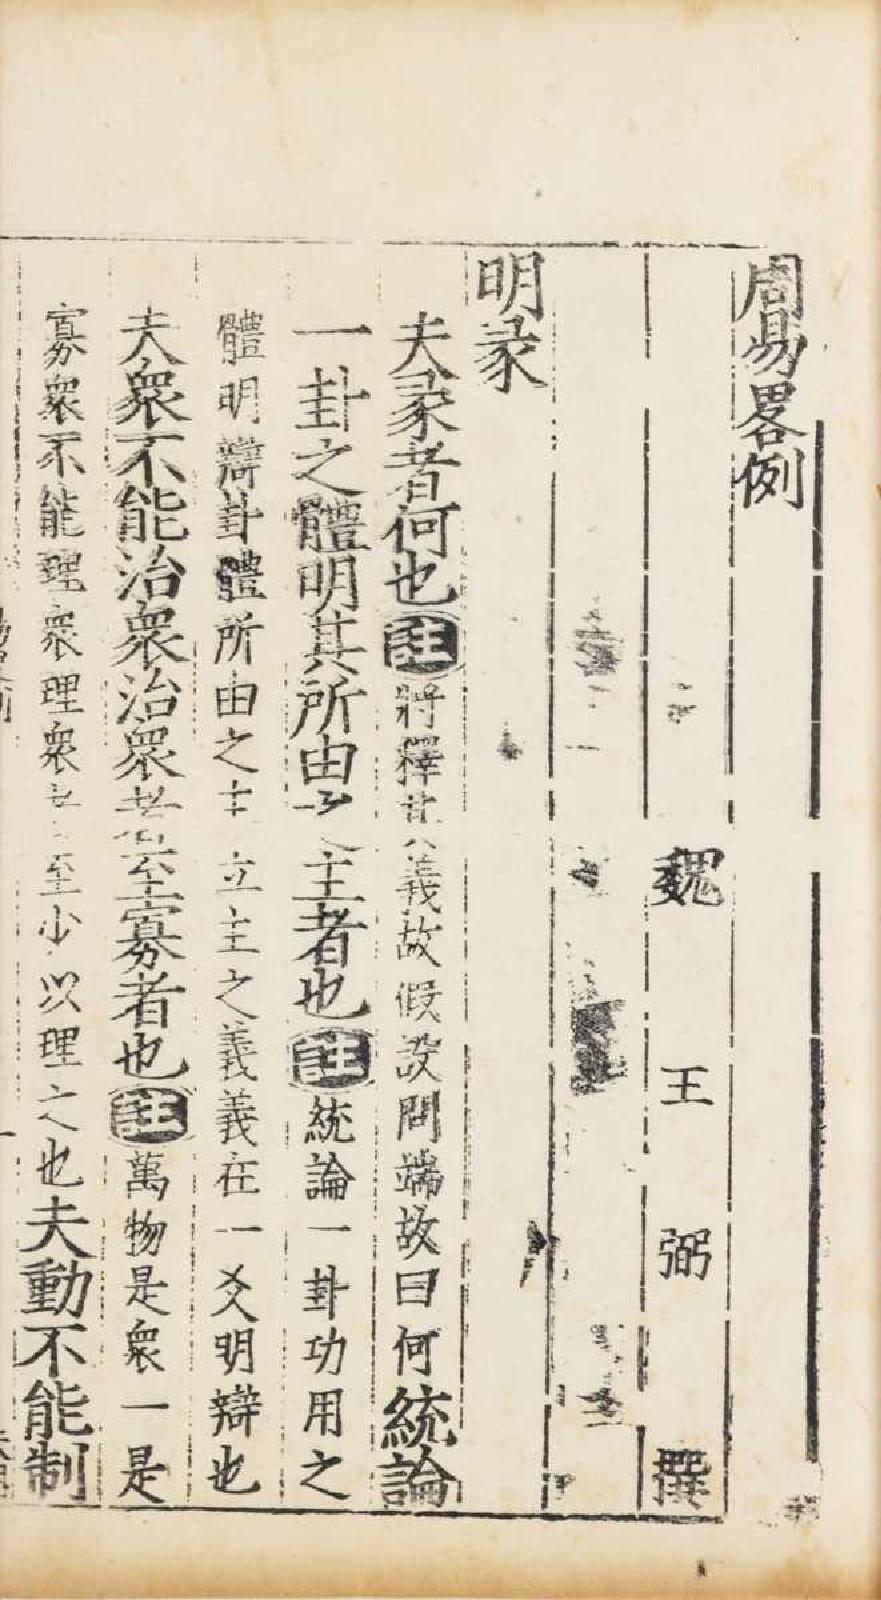 周易畧例
魏王弼撰
明彖
夫彖者何也註將釋其義故假設問端故曰何統論
一卦之體明其所由之主者也註統論一卦功用之
體明辯卦體所由之主立主之義義在一爻明辯也
夫衆不能治衆治衆者至寡者也註萬物是衆一是
寡衆不能理衆理衆者至少以理之也夫動不能制